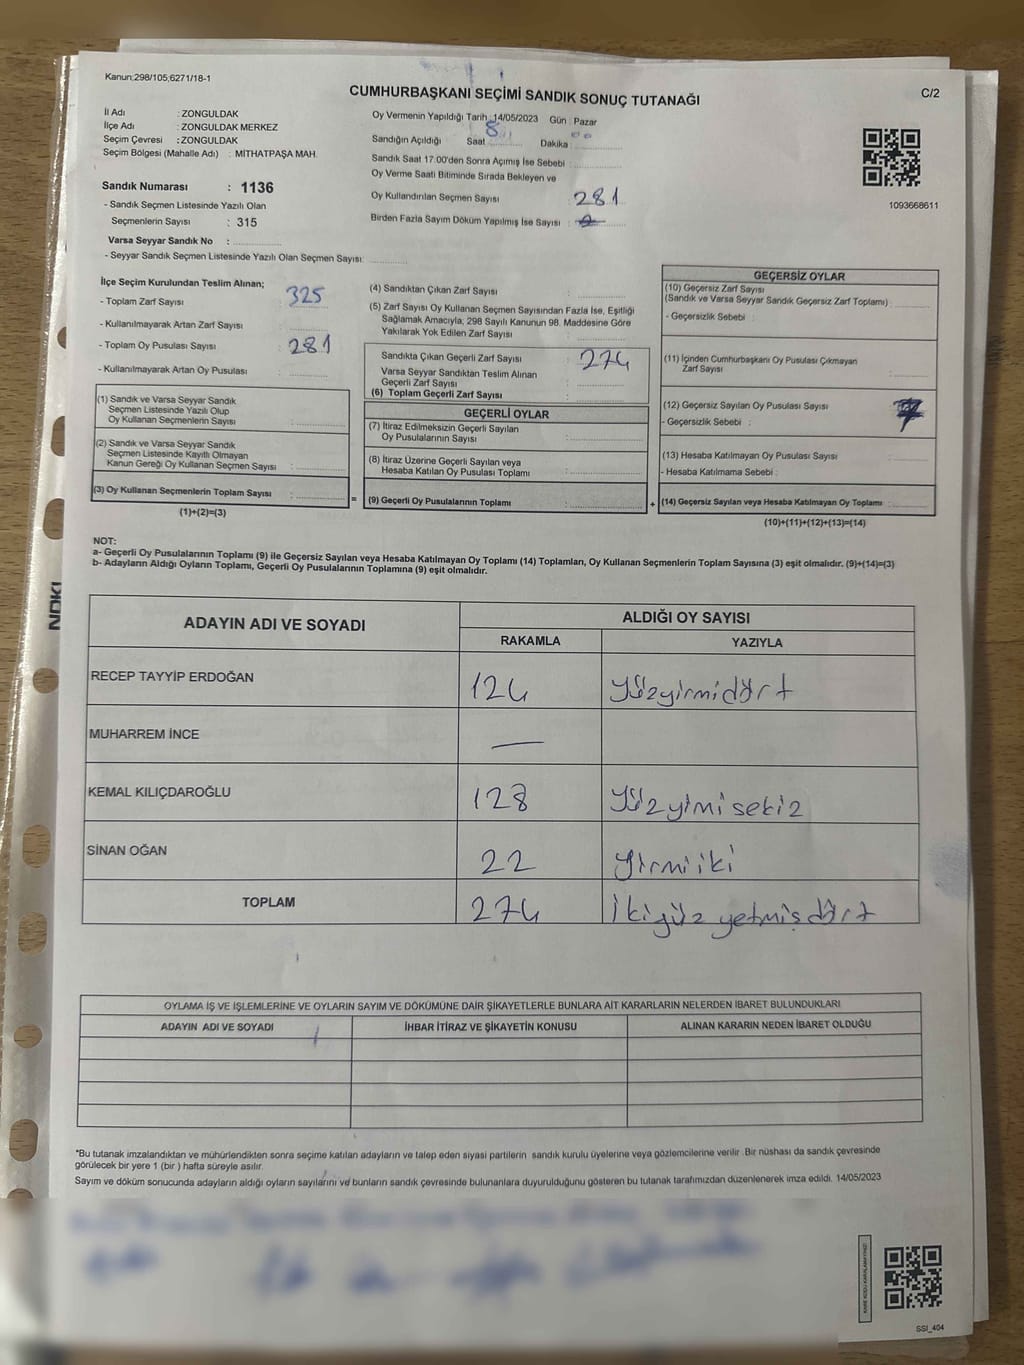 Kanun:298/105;6271/18-1
CUMHURBAŞKANI SEÇİMİ SANDIK SONUÇ TUTANAĞI
C/2
İl Adı : ZONGULDAK
İlçe Adı : ZONGULDAK MERKEZ
Seçim Çevresi : ZONGULDAK
Seçim Bölgesi (Mahalle Adı) : MİTHATPAŞA MAH.
Oy Vermenin Yapıldığı Tarih : 14/05/2023 Gün : Pazar
Sandığın Açıldığı Saat 8 Dakika : 00
Sandık Saat 17.00'den Sonra Açımış İse Sebebi :
Oy Verme Saati Bitiminde Sırada Bekleyen ve
Oy Kullandırılan Seçmen Sayısı : 281
Birden Fazla Sayım Döküm Yapılmış İse Sayısı :
1093668611
Sandık Numarası : 1136
- Sandık Seçmen Listesinde Yazılı Olan
Seçmenlerin Sayısı : 315
Varsa Seyyar Sandık No :
- Seyyar Sandık Seçmen Listesinde Yazılı Olan Seçmen Sayısı:
İlçe Seçim Kurulundan Teslim Alınan;
- Toplam Zarf Sayısı : 325
- Kullanılmayarak Artan Zarf Sayısı :
- Toplam Oy Pusulası Sayısı : 281
- Kullanılmayarak Artan Oy Pusulası :
(1) Sandık ve Varsa Seyyar Sandık
Seçmen Listesinde Yazılı Olup
Oy Kullanan Seçmenlerin Sayısı :
(2) Sandık ve Varsa Seyyar Sandık
Seçmen Listesinde Kayıtlı Olmayan
Kanun Gereği Oy Kullanan Seçmen Sayısı :
(3) Oy Kullanan Seçmenlerin Toplam Sayısı :
(1)+(2)=(3)
(4) Sandıktan Çıkan Zarf Sayısı :
(5) Zarf Sayısı Oy Kullanan Seçmen Sayısından Fazla İse, Eşitliği
Sağlamak Amacıyla, 298 Sayılı Kanunun 98. Maddesine Göre
Yakılarak Yok Edilen Zarf Sayısı :
Sandıkta Çıkan Geçerli Zarf Sayısı : 274
Varsa Seyyar Sandıktan Teslim Alınan
Geçerli Zarf Sayısı :
(6) Toplam Geçerli Zarf Sayısı :
GEÇERLİ OYLAR
(7) İtiraz Edilmeksizin Geçerli Sayılan
Oy Pusulalarının Sayısı :
(8) İtiraz Üzerine Geçerli Sayılan veya
Hesaba Katılan Oy Pusulası Toplamı :
= (9) Geçerli Oy Pusulalarının Toplamı : +
GEÇERSİZ OYLAR
(10) Geçersiz Zarf Sayısı
(Sandık ve Varsa Seyyar Sandık Geçersiz Zarf Toplamı) :
- Geçersizlik Sebebi :
(11) İçinden Cumhurbaşkanı Oy Pusulası Çıkmayan
Zarf Sayısı :
(12) Geçersiz Sayılan Oy Pusulası Sayısı : 7
- Geçersizlik Sebebi :
(13) Hesaba Katılmayan Oy Pusulası Sayısı :
- Hesaba Katılmama Sebebi :
(14) Geçersiz Sayılan veya Hesaba Katılmayan Oy Toplamı :
(10)+(11)+(12)+(13)=(14)
NOT:
a- Geçerli Oy Pusulalarının Toplamı (9) ile Geçersiz Sayılan veya Hesaba Katılmayan Oy Toplamı (14) Toplamları, Oy Kullanan Seçmenlerin Toplam Sayısına (3) eşit olmalıdır. (9)+(14)=(3)
b- Adayların Aldığı Oyların Toplamı, Geçerli Oy Pusulalarının Toplamına (9) eşit olmalıdır.
ADAYIN ADI VE SOYADI
ALDIĞI OY SAYISI
RAKAMLA YAZIYLA
RECEP TAYYİP ERDOĞAN 124 Yüzyirmidört
MUHARREM İNCE —
KEMAL KILIÇDAROĞLU 128 Yüzyimisekiz
SİNAN OĞAN 22 Yirmiiki
TOPLAM 274 İkiyüz yetmişdört
OYLAMA İŞ VE İŞLEMLERİNE VE OYLARIN SAYIM VE DÖKÜMÜNE DAİR ŞİKAYETLERLE BUNLARA AİT KARARLARIN NELERDEN İBARET BULUNDUKLARI
ADAYIN ADI VE SOYADI İHBAR İTİRAZ VE ŞİKAYETİN KONUSU ALINAN KARARIN NEDEN İBARET OLDUĞU
*Bu tutanak imzalandıktan ve mühürlendikten sonra seçime katılan adayların ve talep eden siyasi partilerin sandık kurulu üyelerine veya gözlemcilerine verilir. Bir nüshası da sandık çevresinde
görülecek bir yere 1 (bir ) hafta süreyle asılır.
Sayım ve döküm sonucunda adayların aldığı oyların sayılarını ve bunların sandık çevresinde bulunanlara duyurulduğunu gösteren bu tutanak tarafımızdan düzenlenerek imza edildi. 14/05/2023
SSI_404